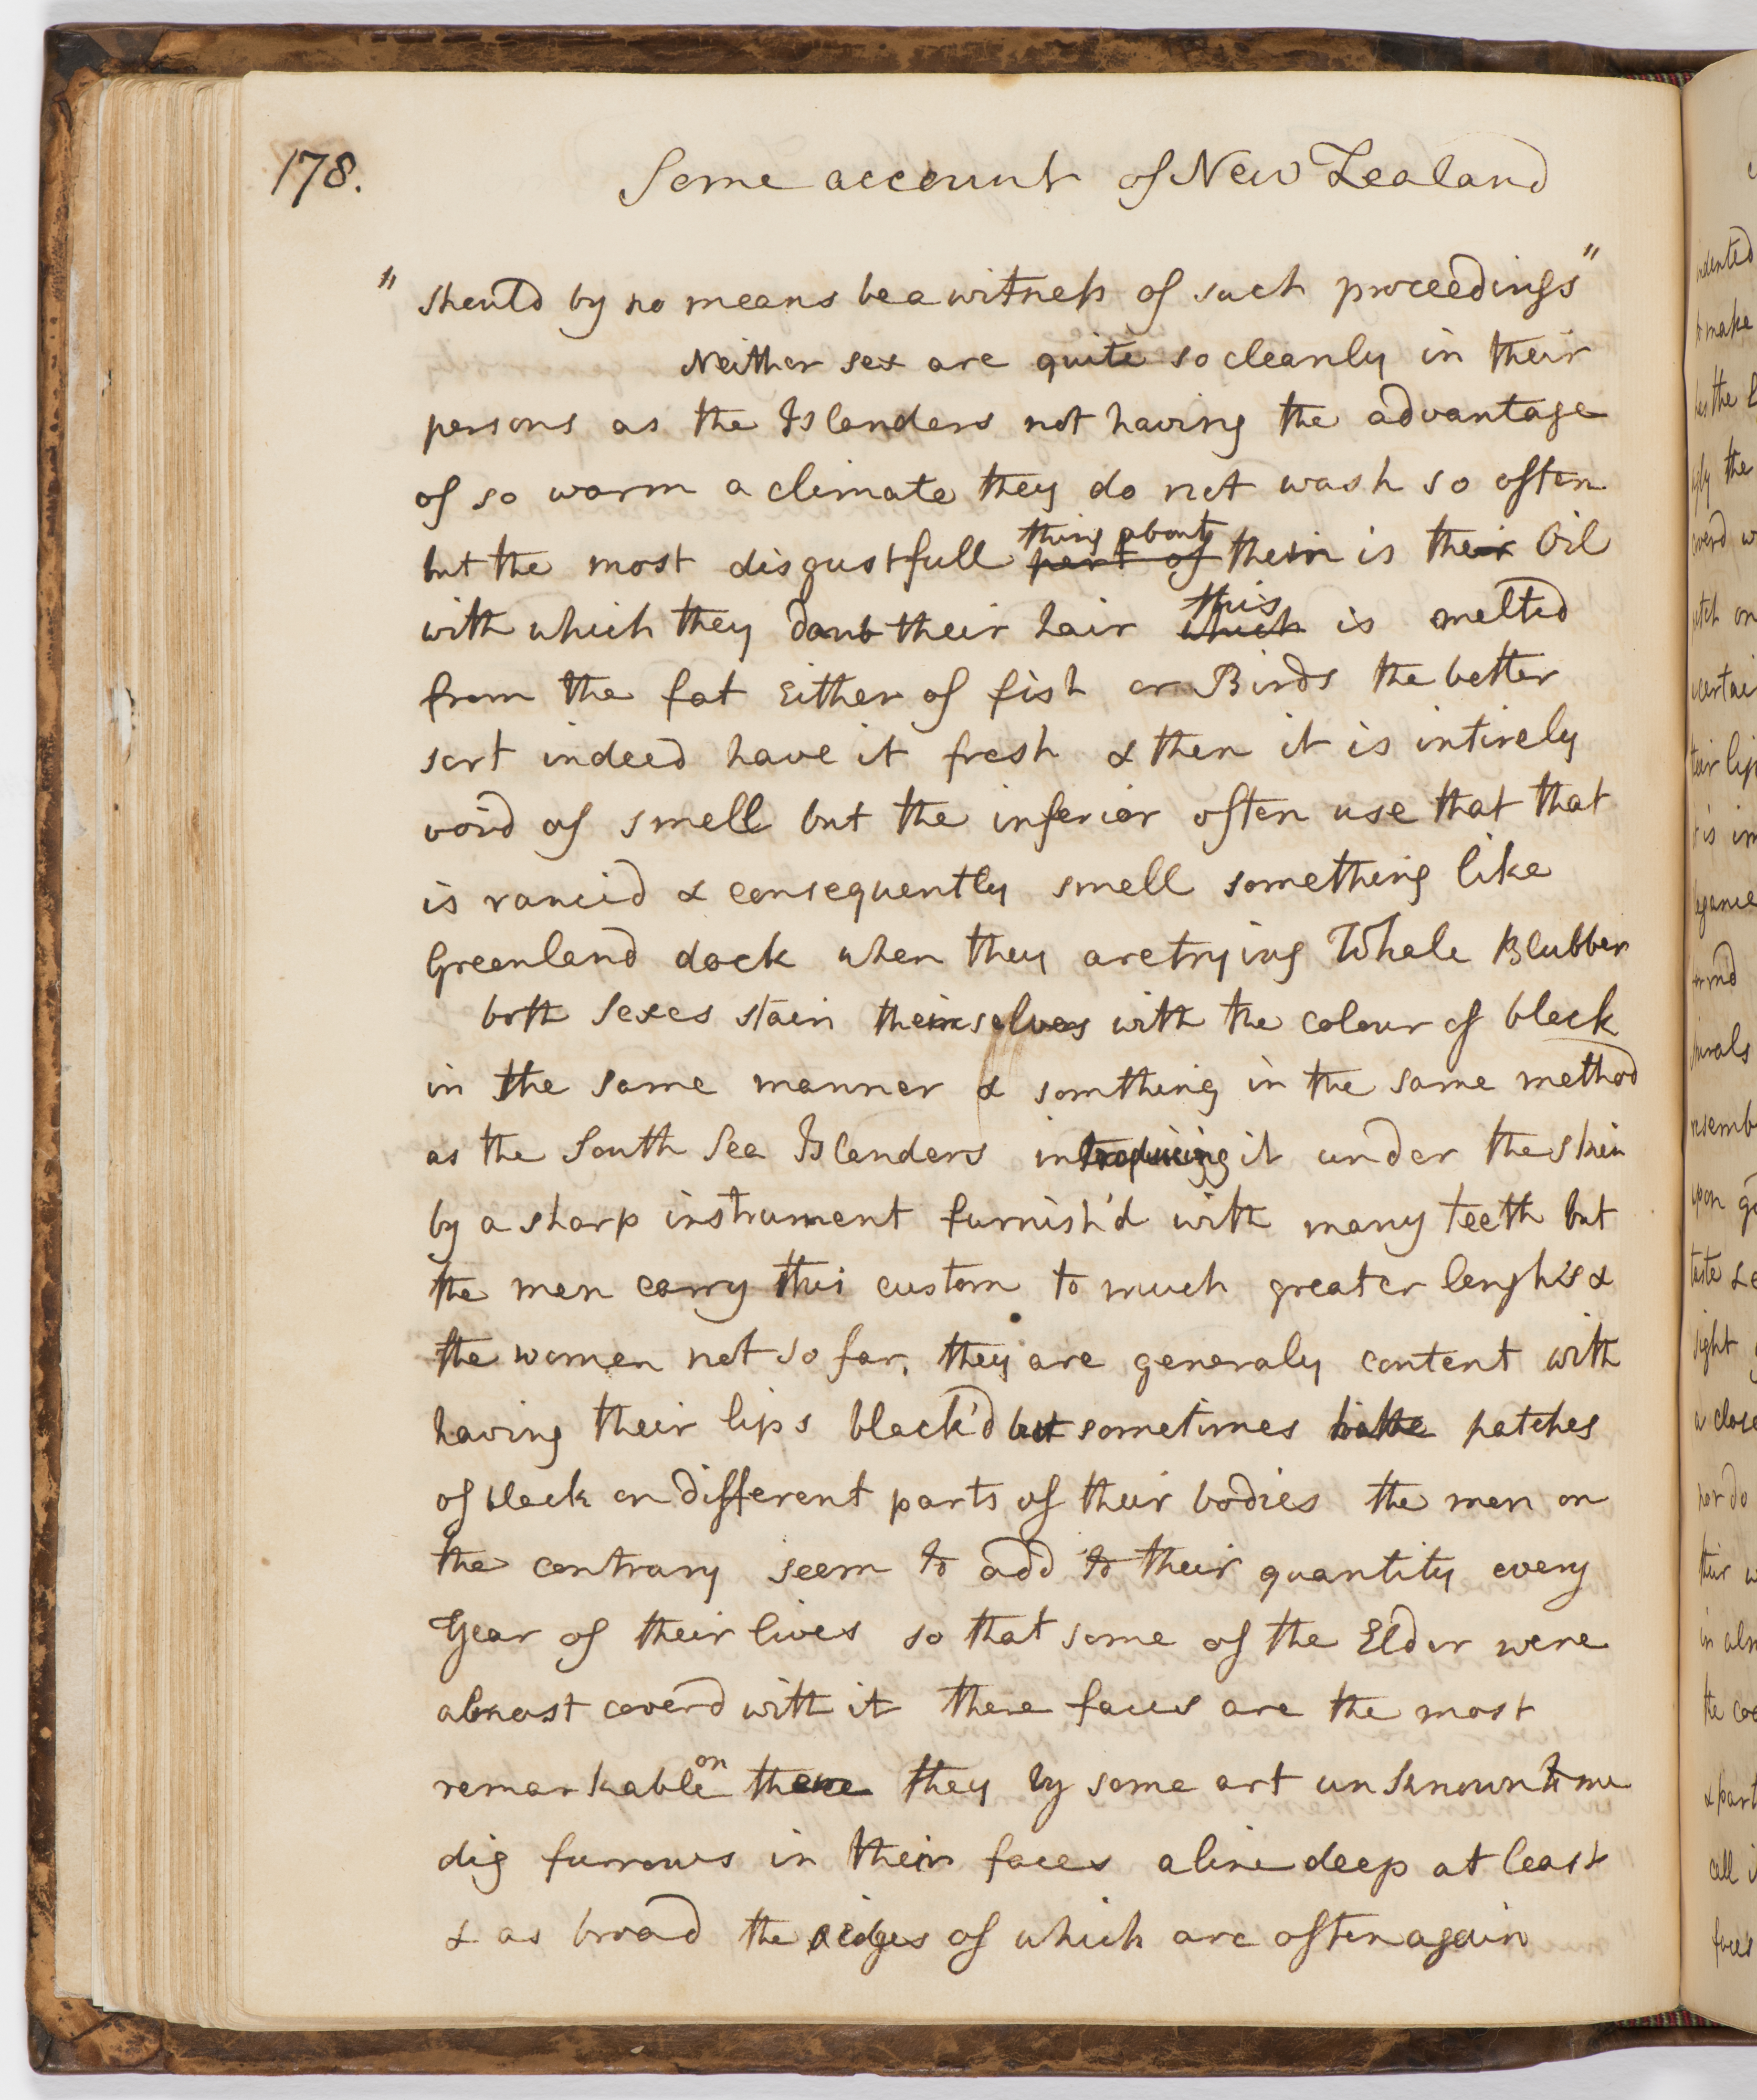 178.
Some account of New Zealand
" should by no means be a witness of such proceedings "
Neither sex are quite so cleanly in their
persons as the Islanders not having the advantage
of so warm a climate they do not wash so often
thing about
but the most disgustfull part of them is their Oil
this
with which they daub their hair which is melted
from the fat Either of fish or Birds the better
sort indeed have it fresh & then it is intirely
void of smell but the inferior often use that that
is rancid & consequently smell something like
Greenland dock when they are trying Whale Blubber
both sexes stain themselves with the colour of black
in the same manner & somthing in the same method
as the South Sea Islanders introducing it under the skin
by a sharp instrument furnish'd with many teeth but
the men carry this custom to much greater lenghs &
the women not so far, they are generaly content with
having their lips black'd but sometimes have patches
of black on different parts of their bodies the men on
the contrary seem to add to their quantity every
Year of their lives so that some of the Elder were
almost coverd with it there faces are the most
on
remarkable there they by some art unknown to me
dig furrows in their faces a line deep at least
& as broad the edges of which are often again
indented
to make
the
sight
their
in